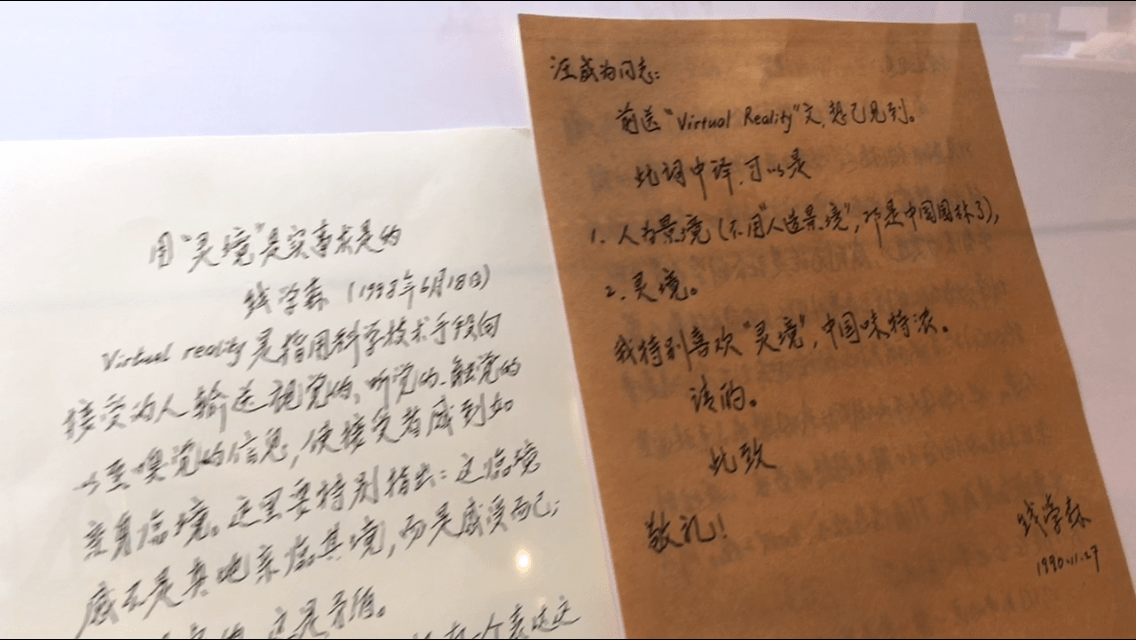 用“灵境”是实事求是的
钱学森（1998年6月18日）
Virtual reality是指用科学技术手段向
接受的人输送视觉的、听觉的、触觉的
以至嗅觉的信息，使接受者感到如
亲身临境。这里要特别指出：这临境
感不是真地亲临其境，而是感受而已；
这是矛盾。
汪成为同志：
前送“Virtual Reality”文，想已见到。
此词中译，可以是
1. 人为景境（不用“人造景境”，那是中国园林了），
2. 灵境。
我特别喜欢“灵境”，中国味特浓。
请酌。
此致
敬礼！
钱学森
1990.11.27